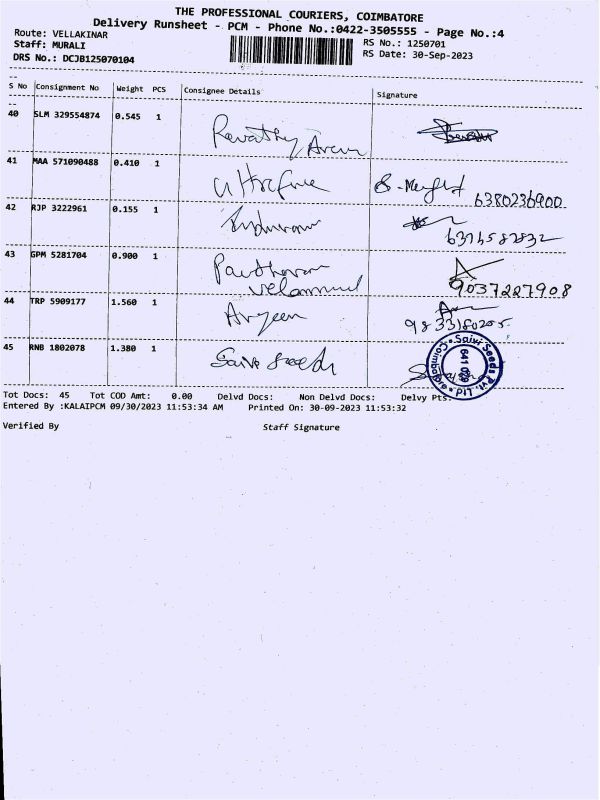 THE PROFESSIONAL COURIERS, COIMBATORE
Delivery Runsheet - PCM - Phone No.:0422-3505555 - Page No.:4
Route: VELLAKINAR
Staff: MURALI
DRS No.: DCJB125070104
RS No.: 1250701
RS Date: 30-Sep-2023
S No Consignment No Weight PCS Consignee Details Signature
40 SLM 329554874 0.545 1 Revathy Arun
41 MAA 571090488 0.410 1
42 RJP 3222961 0.155 1
43 GPM 5281704 0.900 1 9037227908
44 TRP 5909177 1.560 1
45 RNB 1802078 1.380 1 Saivi Seeds
Saivi Seeds Pvt. Ltd
Coimbatore
641 029
Tot Docs: 45 Tot COD Amt: 0.00 Delvd Docs: Non Delvd Docs: Delvy Pts:
Entered By :KALAIPCM 09/30/2023 11:53:34 AM Printed On: 30-09-2023 11:53:32
Verified By Staff Signature